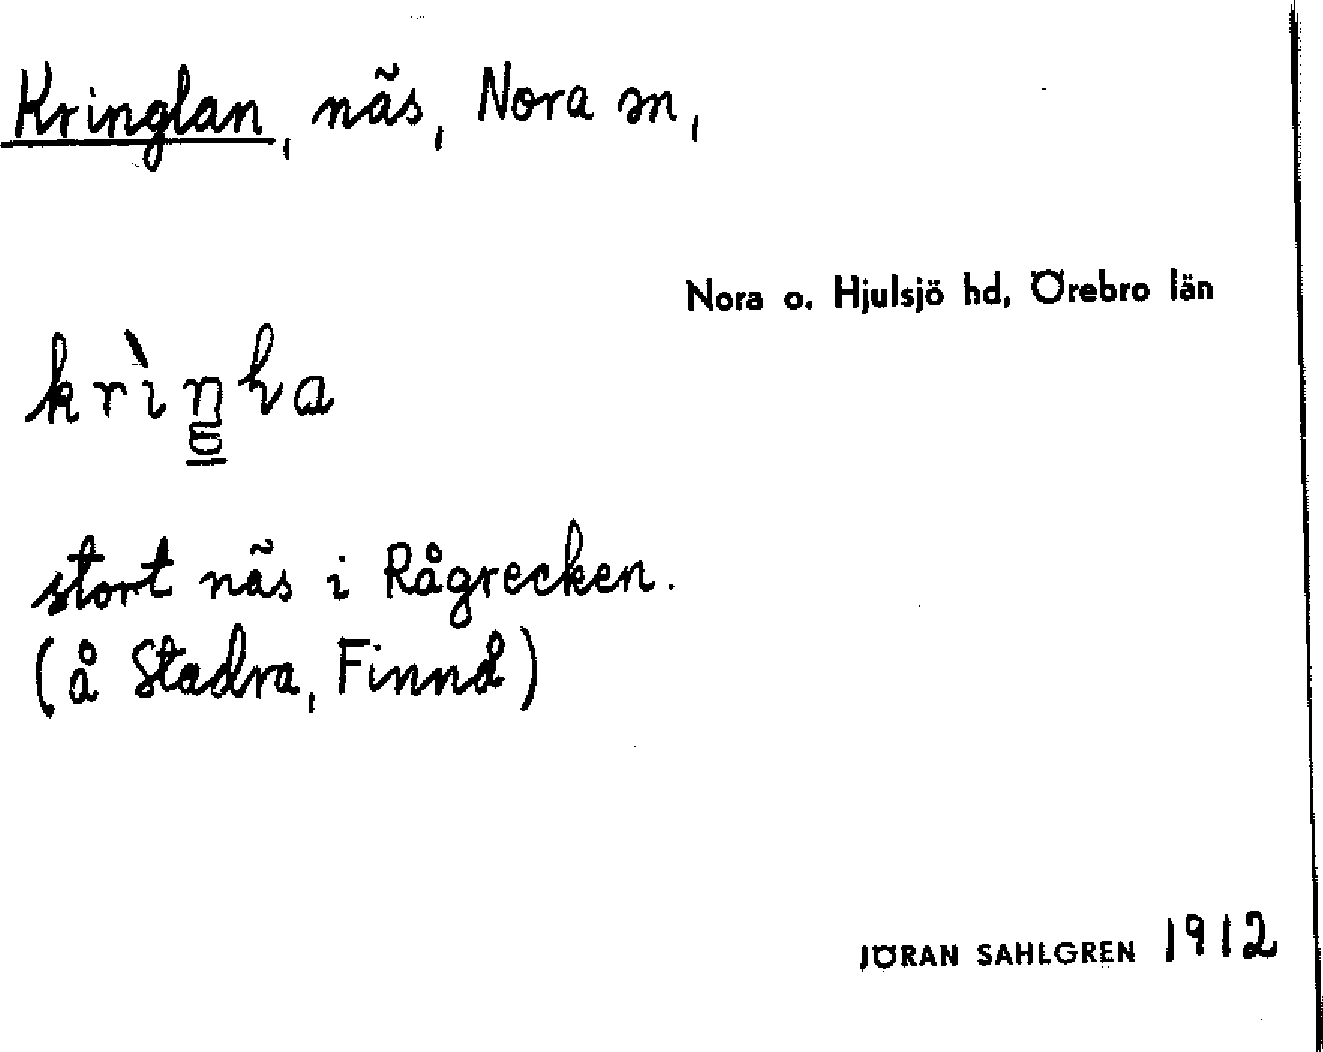 Kringlan, näs, Nora sn,
Nora o. Hjulsjö hd, Örebro län
stort näs i Rågrecken.
(å Stadra, Finnå)
JÖRAN SAHLGREN 1912